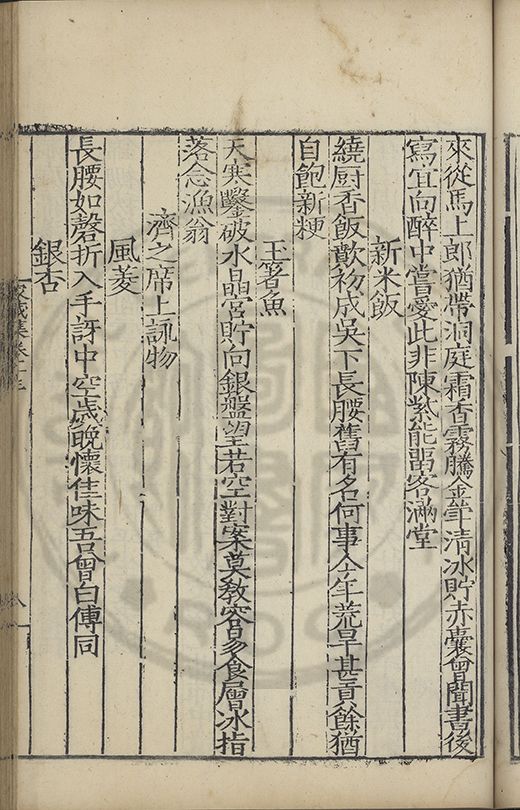 來從馬上郎猶帶洞庭霜香霧騰金笮清冰貯赤囊曾聞書後
寫宜向醉中嘗愛此非陳紫能留客滿堂
新米飯
繞厨香飯歕初成吳下長腰舊有名何事今年荒旱甚貢餘猶
自飽新粳
玉箸魚
天寒鑿破水晶宮貯向銀盤望若空對案莫教容易食層冰指
落念漁翁
濟之席上詠物
風菱
長腰如磬折入手訝中空歳晚懷佳味吾曾白傅同
銀杏
家藏集卷十